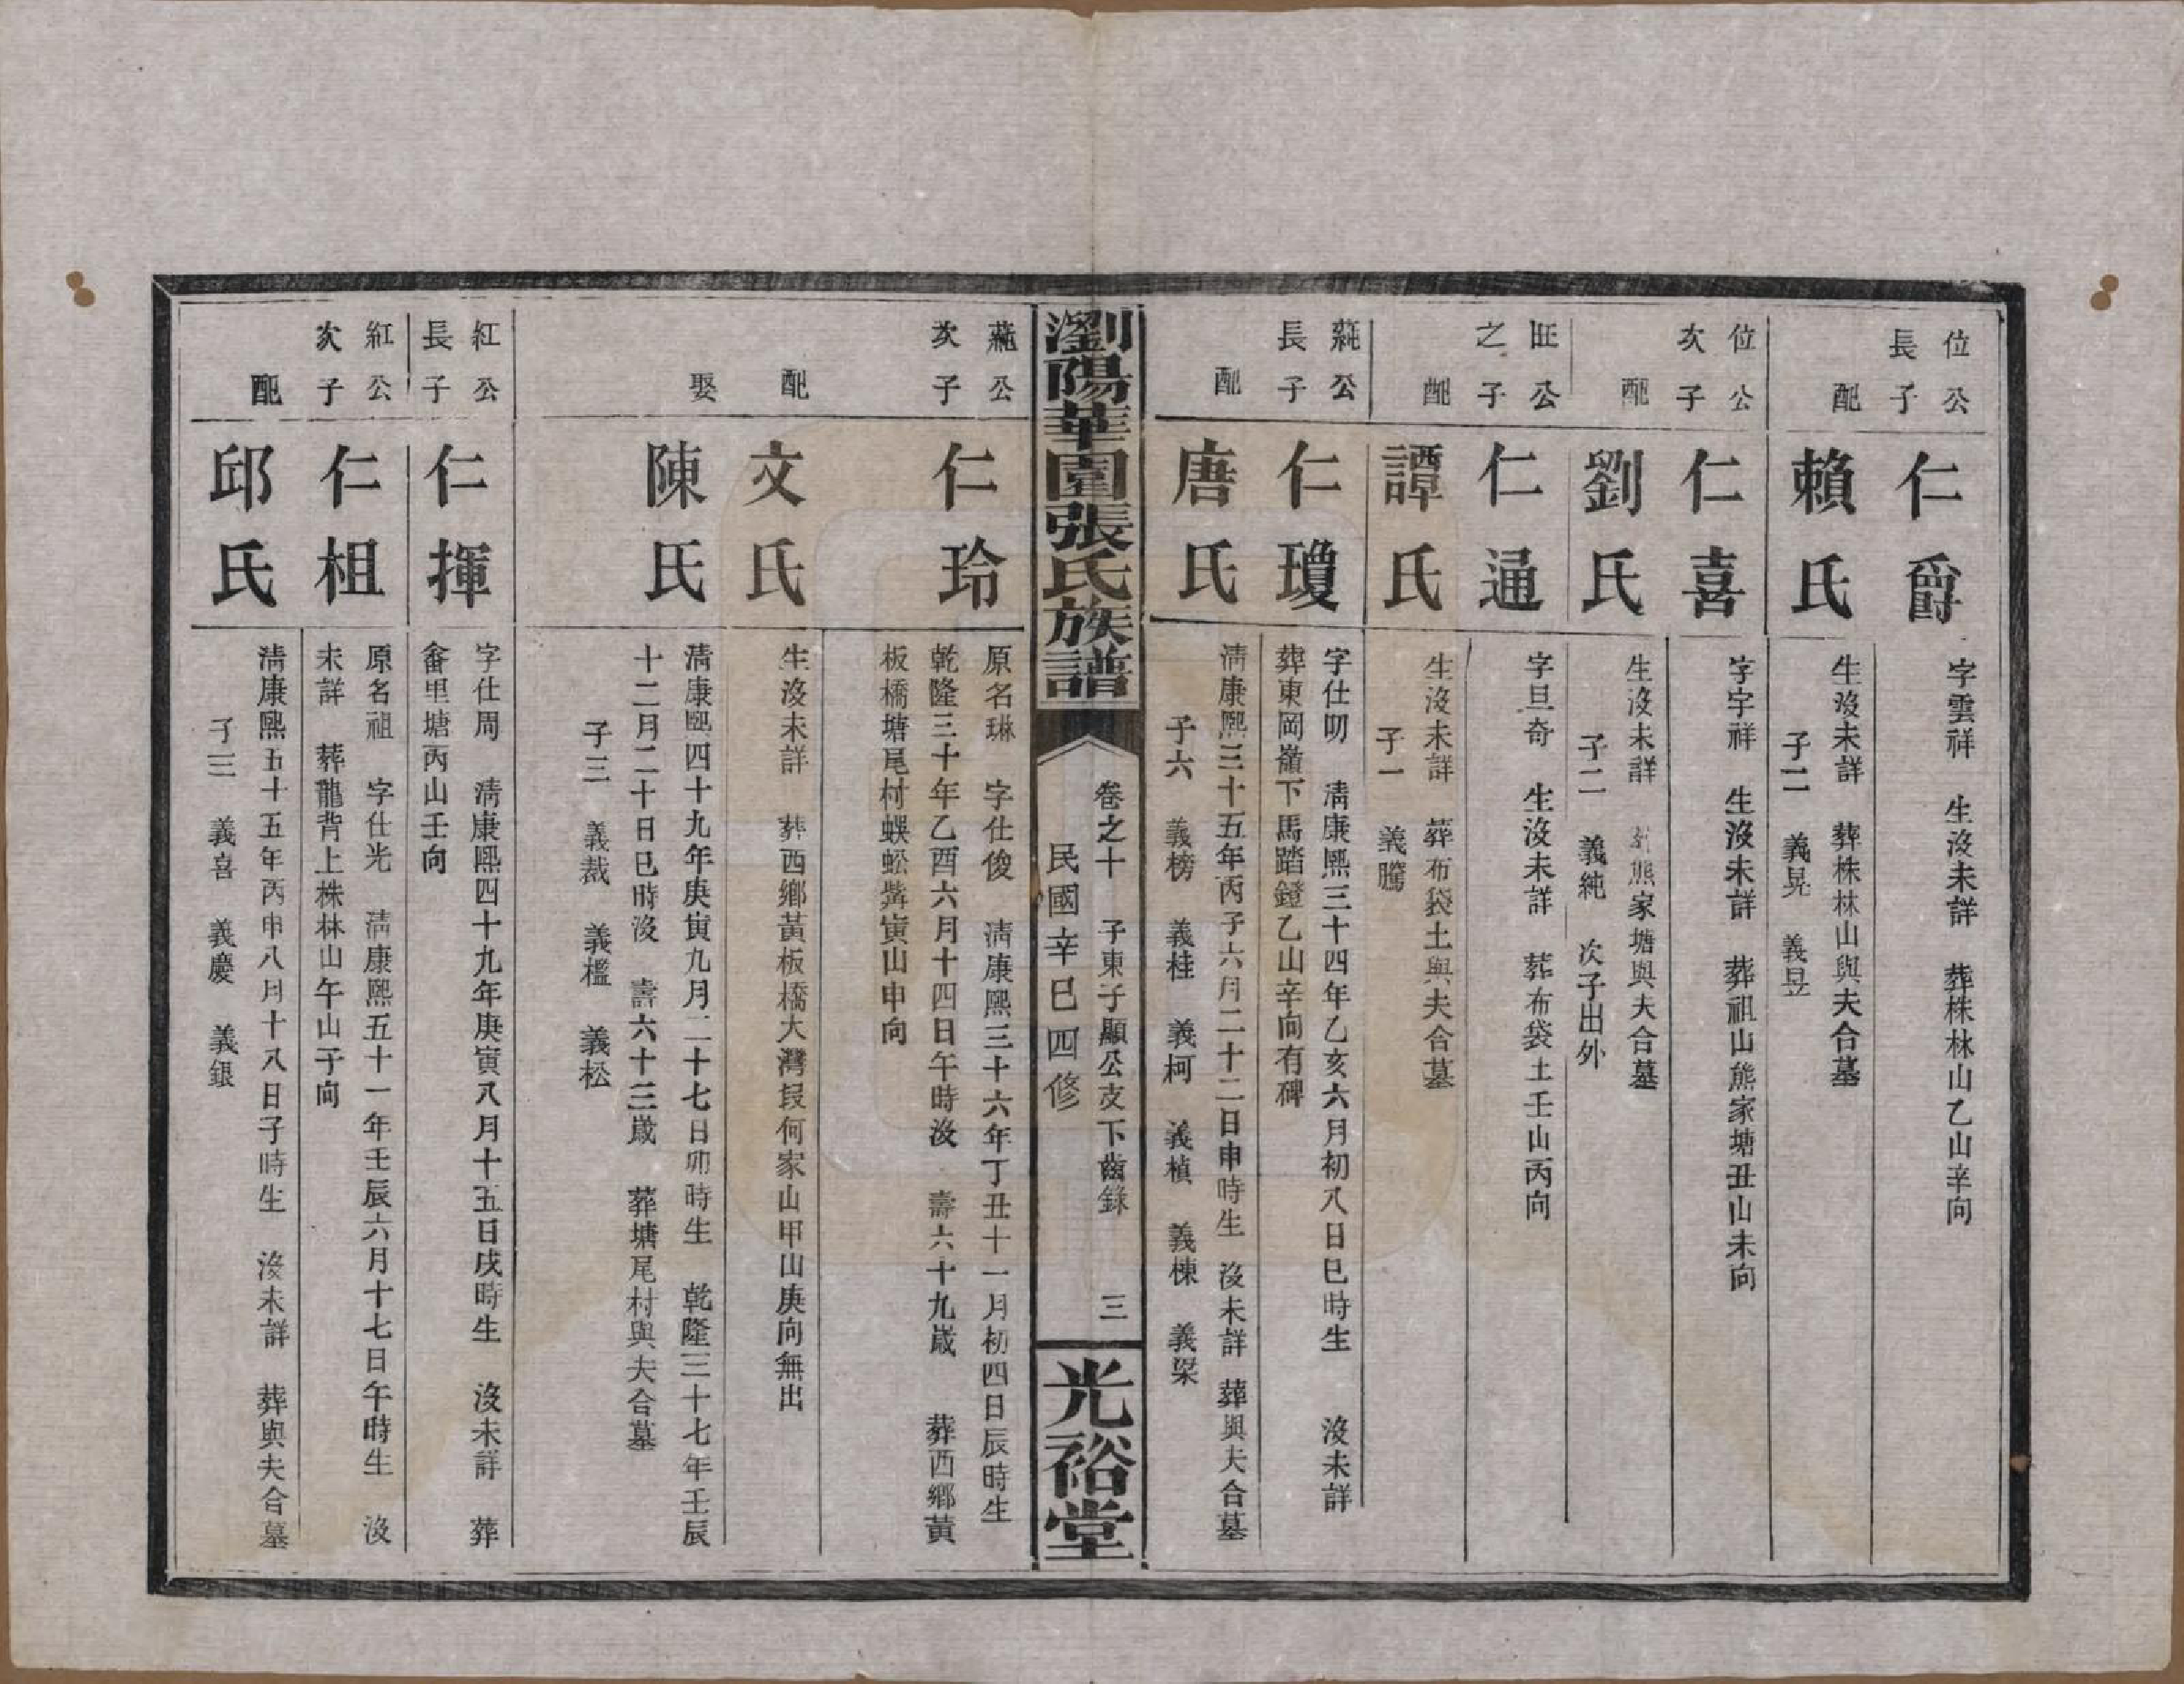 位公長子
仁爵
字雲祥　生沒未詳　葬株林山乙山辛向
配
賴氏
生沒未詳　葬株林山與夫合墓
子二　義晃　義昱
位公次子
仁喜
字字祥　生沒未詳　葬祖山熊家塘丑山未向
配
劉氏
生沒未詳　葬熊家塘與夫合墓
子二　義純　次子出外
旺公之子
仁通
字旦奇　生沒未詳　葬布袋土壬山丙向
配
譚氏
生沒未詳　葬布袋土與夫合墓
子一　義騰
公長子
仁瓊
字仕叨　清康熙三十四年乙亥六月初八日巳時生　沒未詳
葬東岡嶺下馬踏鐙乙山辛向有碑
配
唐氏
清康熙三十五年丙子六月二十二日申時生　沒未詳　葬與夫合墓
子六　義榜　義桂　義柯　義楨　義棟　義梁
瀏陽華園張氏族譜
卷之十　子東子顯公支下齒錄　三
民國辛巳四修
光裕堂
公次子
仁玲
原名琳　字仕俊　清康熙三十六年丁丑十一月初四日辰時生
乾隆三十年乙酉六月十四日午時沒　壽六十九歲　葬西鄉黃
板橋塘尾村蜈蚣嘴寅山申向
配
文氏
生沒未詳　葬西鄉黃板橋大灣段何家山甲山庚向無出
娶
陳氏
清康熙四十九年庚寅九月二十七日卯時生　乾隆三十七年壬辰
十二月二十日巳時沒　壽六十三歲　葬塘尾村與夫合墓
子三　義裁　義檻　義松
紅公長子
仁揮
字仕周　清康熙四十九年庚寅八月十五日戌時生　沒未詳　葬
畬里塘丙山壬向
紅公次子
仁祖
原名祖　字仕光　清康熙五十一年壬辰六月十七日午時生　沒
未詳　葬龍背上株林山午山子向
配
邱氏
清康熙五十五年丙申八月十八日子時生　沒未詳　葬與夫合墓
子三　義喜　義慶　義銀